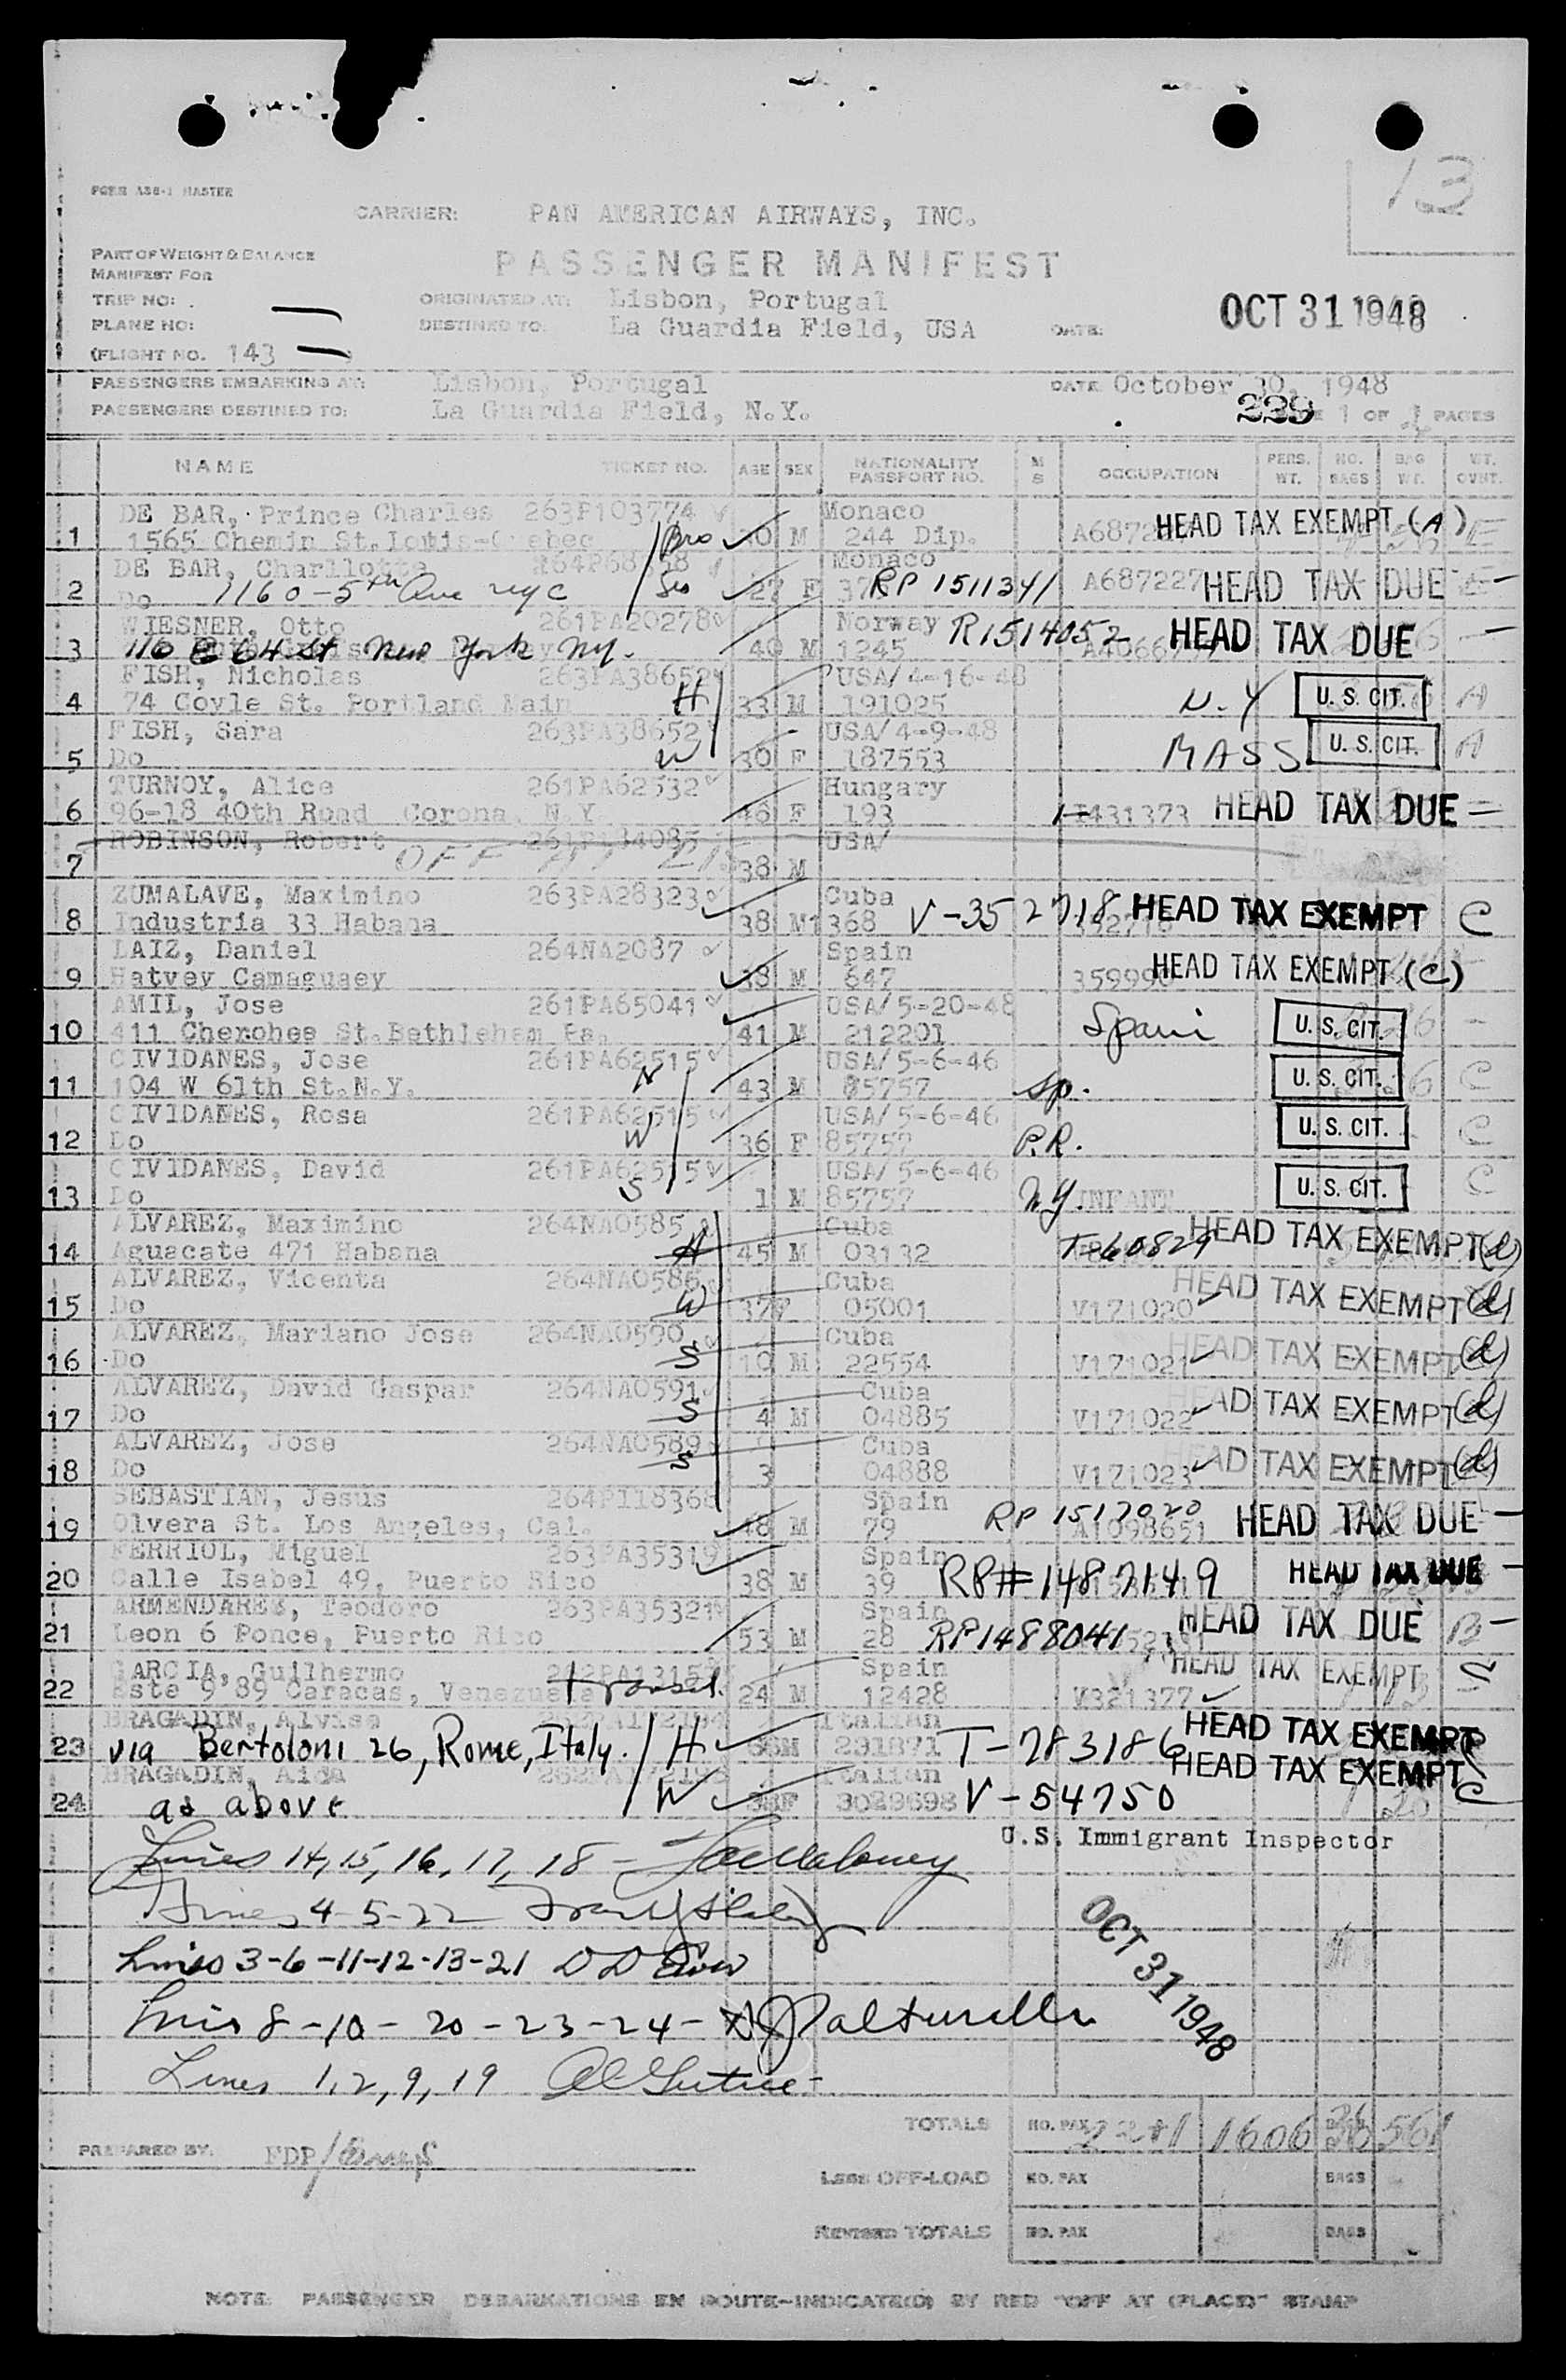 13
FORM A36-1 MASTER
CARRIER: PAN AMERICAN AIRWAYS, INC.
PART OF WEIGHT & BALANCE
MANIFEST FOR
PASSENGER MANIFEST
TRIP NO: ORIGINATED AT: Lisbon, Portugal
OCT 31 1948
PLANE NO: DESTINED TO: La Guardia Field, USA DATE:
(FLIGHT NO. 143
PASSENGERS EMBARKING AT: Lisbon, Portugal DATE October 30, 1948
PASSENGERS DESTINED TO: La Guardia Field, N.Y. 229 1 OF PAGES
NAME TICKET NO. AGE SEX NATIONALITY PASSPORT NO. M S OCCUPATION PERS. WT. NO. BAGS BAG WT. WT. OVNT.
DE BAR, Prince Charles 263P103774 Monaco
1 1565 Chemin St. Bro M 244 Dip. HEAD TAX EXEMPT (A) E
DE BAR, Monaco
2 Do 1160-5th Ave nyc Sis 27 F RP 1511341 A687227 HEAD TAX DUE
WIESNER, Otto 261PA20278 Norway R1514052
3 116 E 64 St New York NY. 40 M 1245 HEAD TAX DUE
FISH, Nicholas 263PA38652 USA/4-16-48
4 74 Coyle St. Portland Main H 33 M 191025 N.Y U. S. CIT. A
FISH, Sara 263PA38652 USA/4-9-48
5 Do W 30 F 187553 MASS U. S. CIT. A
TURNOY, Alice 261PA62532 Hungary
6 96-18 40th Road Corona, N Y 46 F 193 I431373 HEAD TAX DUE
ROBINSON, Robert USA/
7 OFF AT 38 M
ZUMALAVE, Maximino 263PA28323 Cuba
8 Industria 33 Habana 38 M 1368 V-352718 HEAD TAX EXEMPT C
LAIZ, Daniel 264NA2087 Spain
9 Hatvey Camaguaey 38 M 647 HEAD TAX EXEMPT (C)
AMIL, Jose 261PA65041 USA/5-20-48
10 411 Cherohee St. Bethlehem Pa. 41 M 212201 Spain U. S. CIT.
CIVIDANES, Jose 261PA62515 USA/5-6-46
11 104 W 61th St. N.Y. H 43 M 85757 Sp. U. S. CIT. C
CIVIDANES, Rosa 261PA62515 USA/5-6-46
12 Do W 36 F 85757 P.R. U. S. CIT. C
CIVIDANES, David 261PA62515 USA/5-6-46
13 Do S 1 M 85757 N.Y. INFANT U. S. CIT. C
ALVAREZ, Maximino 264NA0585 Cuba
14 Aguacate 471 Habana H 45 M 03132 T-60829 HEAD TAX EXEMPT (d)
ALVAREZ, Vicenta 264NA0586 Cuba
15 Do W 37 F 05001 V171020 HEAD TAX EXEMPT (d)
ALVAREZ, Mariano Jose 264NA0590 Cuba
16 Do S 10 M 22554 V171021 HEAD TAX EXEMPT (d)
ALVAREZ, David Gaspar 264NA0591 Cuba
17 Do S 4 M 04885 V171022 HEAD TAX EXEMPT (d)
ALVAREZ, Jose 264NA0589 Cuba
18 Do S 3 04888 V171023 HEAD TAX EXEMPT (d)
SEBASTIAN, Jesus Spain
19 Olvera St. Los Angeles, Cal. 48 M 79 RP 1517020 A1098651 HEAD TAX DUE
FERRIOL, Miguel 263PA35319 Spain
20 Calle Isabel 49, Puerto Rico 38 M 39 RP# 1487149 HEAD TAX DUE
ARMENDARES, Teodoro 263PA35321 Spain
21 Leon 6 Ponce, Puerto Rico 53 M 28 RP1488041 HEAD TAX DUE B
GARCIA, Guilhermo Spain
22 Este 9 89 Caracas, Venezuela transit. 24 M 12428 V321377 HEAD TAX EXEMPT S
BRAGADIN, Alvise Italian
23 via Bertoloni 26, Rome, Italy. H M 231871 T-783186 HEAD TAX EXEMPT
BRAGADIN, Aida Italian
24 as above W F 3023698 V-54750 HEAD TAX EXEMPT C
U.S. Immigrant Inspector
Lines 14, 15, 16, 17, 18 -
Lines 4-5-22
Lines 3-6-11-12-13-21
OCT 31 1948
Lines 8-10-20-23-24-
Lines 1, 2, 9, 19
TOTALS NO. PAX 1606 561
PREPARED BY: FDP/
LESS OFF-LOAD NO. PAX BAGS
REVISED TOTALS NO. PAX BAGS
NOTE: PASSENGER DEBARKATIONS EN ROUTE-INDICATE(D) BY RED "OFF AT (PLACE)" STAMP